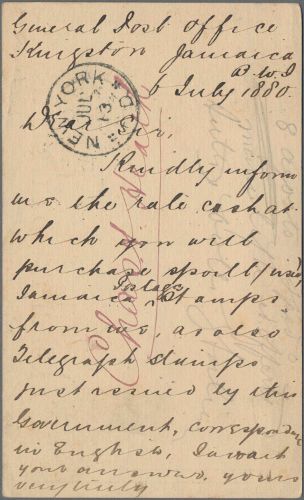 General Post Office
Kingston Jamaica
B.W.I
6 July 1880.
NEW YORK
JUL
13
Dear Sir,
Kindly inform
me the rate cash at
which you will
purchase spoilt/used
Jamaica Postage Stamps
from me, as also
Telegraph stamps
just issued by this
Government, correspondence
in English, I await
your answer, yours
very truly